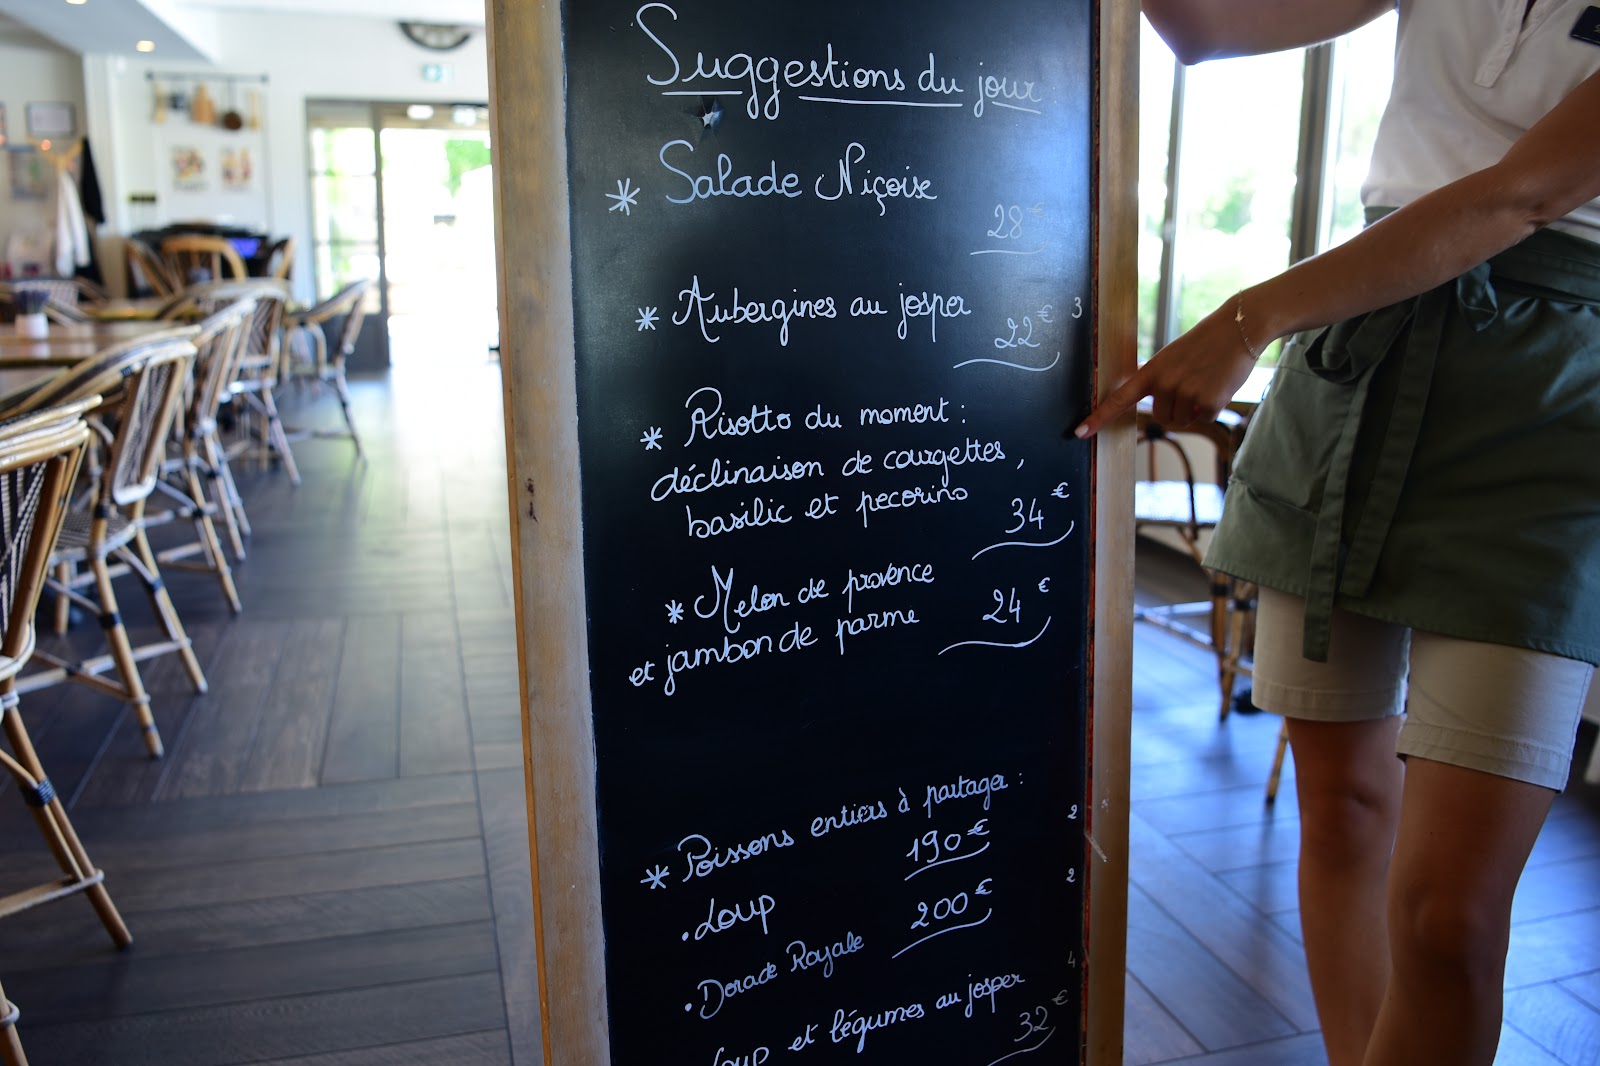 Suggestions du jour
* Salade Niçoise
28€
* Aubergines au josper
22€ 3
* Risotto du moment :
déclinaison de courgettes,
basilic et pecorino
34€
* Melon de provence
et jambon de parme
24€
* Poissons entiers à partager :
• Loup 190€ 2
• Dorade Royale 200€ 2
Loup et légumes au josper 4
32€